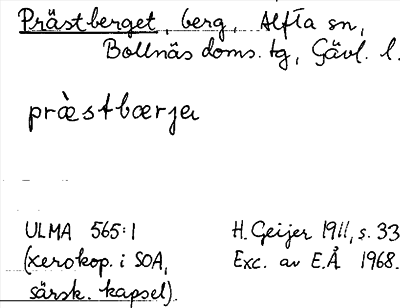 Prästberget, berg, Alfta sn,
Bollnäs doms. tg, Gävl. l.
præ̀stbærjeɩ
ULMA 565:1
(xerokop. i SOA,
särsk. kapsel).
H. Geijer 1911, s. 33
Exc. av E.Å 1968.